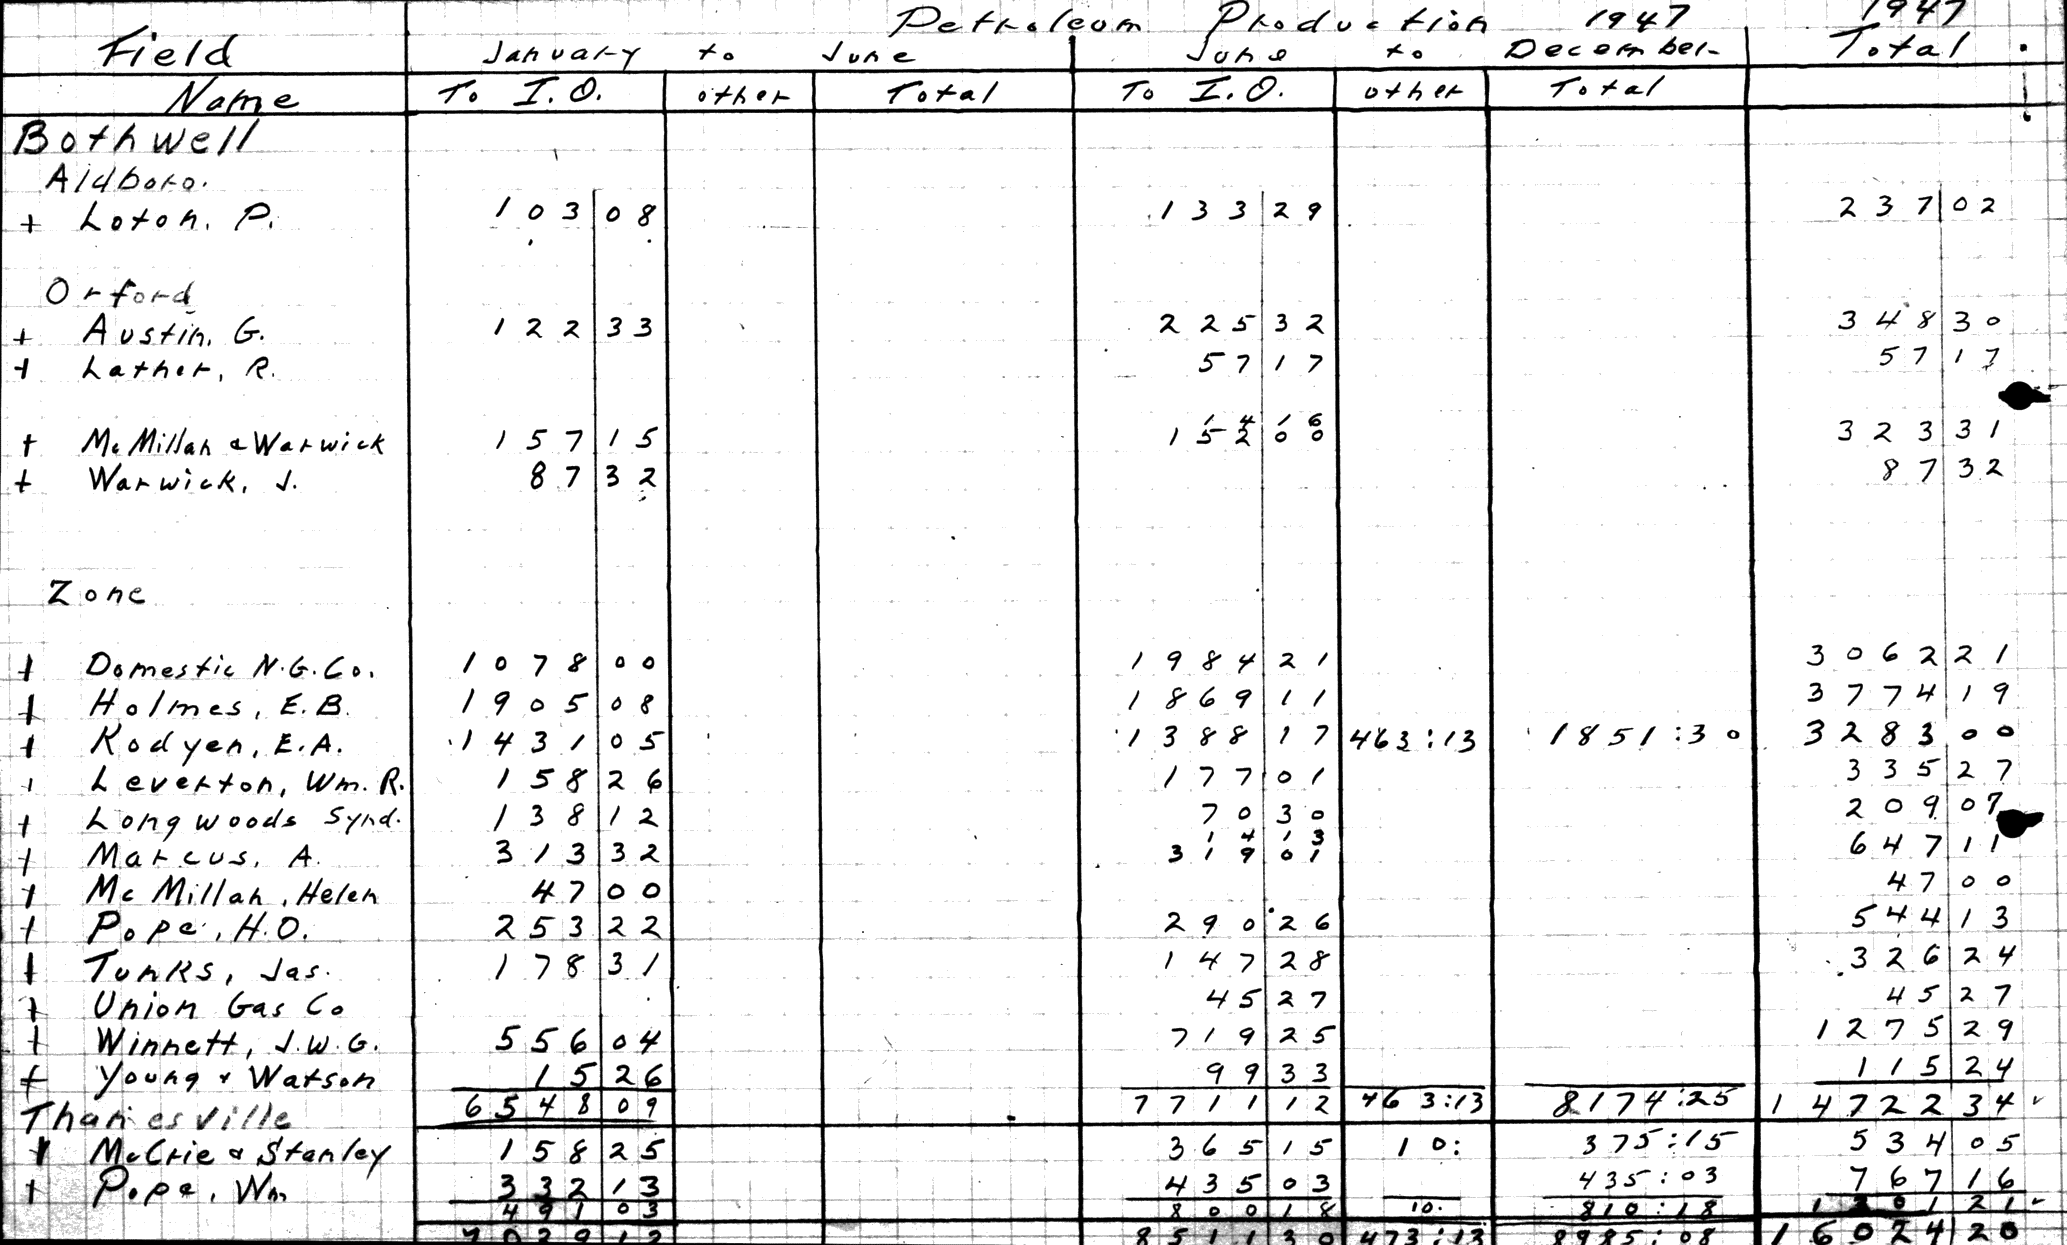 Petroleum Production 1947 1947
Field January to June June to December Total
Name To I.O. other Total To I.O. other Total
Bothwell
Aldboro.
+ Loton, P. 103 08 133 29 237 02
Orford
+ Austin, G. 122 33 225 32 348 30
+ Lather, R. 57 17 57 17
1 4 1 6
+ McMillan & Warwick 157 15 152 00 323 31
+ Warwick, J. 87 32 87 32
Zone
+ Domestic N.G.Co. 1078 00 1984 21 3062 21
+ Holmes, E.B. 1905 08 1869 11 3774 19
+ Kodyen, E.A. 1431 05 1388 17 463:13 1851:30 3283 00
+ Leverton, Wm. R. 158 26 177 01 335 27
+ Longwoods Synd. 138 12 70 30 209 07
1 4 1 3
+ Marcus, A. 313 32 319 01 647 11
+ McMillan, Helen 47 00 47 00
+ Pope, H.O. 253 22 290 26 544 13
+ Tunks, Jas. 178 31 147 28 326 24
+ Union Gas Co 45 27 45 27
+ Winnett, J.W.G. 556 04 719 25 1275 29
+ Young & Watson 15 26 99 33 115 24
6548 09 7711 12 463:13 8174:25 14722 34
Thamesville
+ McCrie & Stanley 158 25 365 15 10: 375:15 534 05
+ Pope, Wm 332 13 435 03 435:03 767 16
491 03 800 18 10. 810:18 1301 21
7039 12 8511 30 473:13 8985:08 16024 20